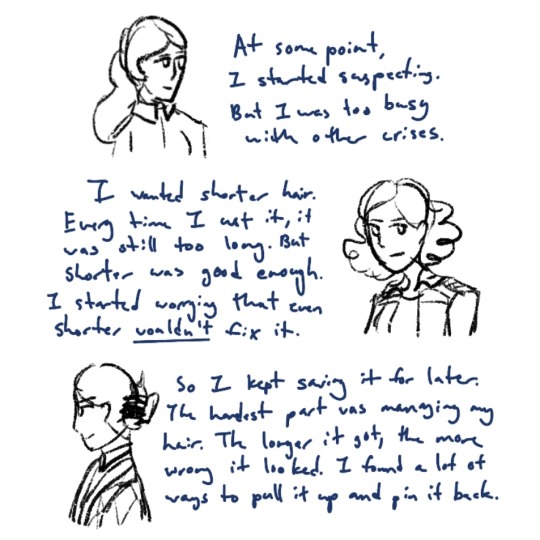 At some point,
I started suspecting.
But I was too busy
with other crises.
I wanted shorter hair.
Every time I cut it, it
was still too long. But
shorter was good enough.
I started worrying that even
shorter wouldn't fix it.
So I kept saving it for later.
The hardest part was managing my
hair. The longer it got, the more
wrong it looked. I found a lot of
ways to pull it up and pin it back.